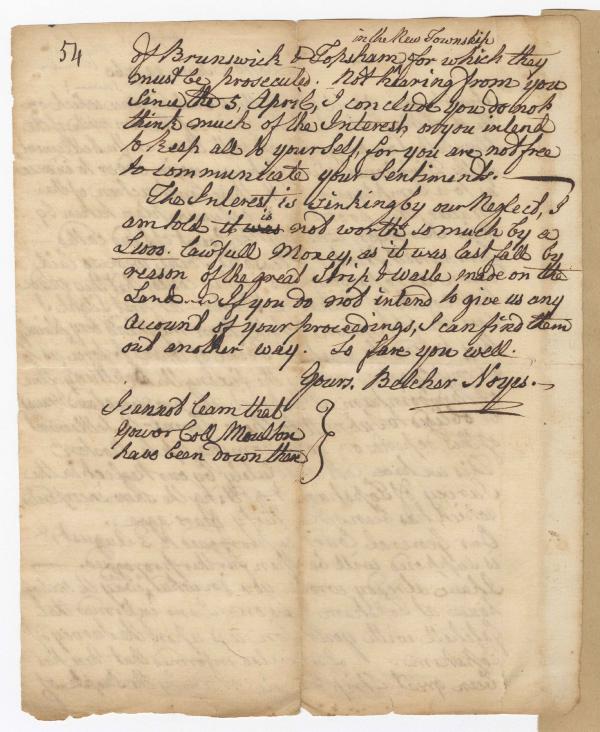 54
in the New Township
of Brunswick & Topsham ^ for which they
must be prosecuted. Not hearing from you
Since the 5, April, I conclude you do not
think much of the Interest or you intend
to keep all to yourself, for you are not free
to communicate your Sentiments.
The Interest is Sinking by our Neglect, I
am told it was is not worth so much by a
£1000. Lawfull Money, as it was last fall by
reason of the great Strip & waste made on the
Land if you do not intend to give us any
Account of your proceedings, I can find them
out another way. So fare you well.
Yours. Belcher Noyes.
I cannot learn that
you or Coll Moulton
have been down there